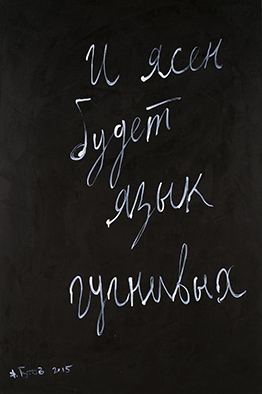 И ясен
будет
язык
гугнивых
Д. Гутов 2015